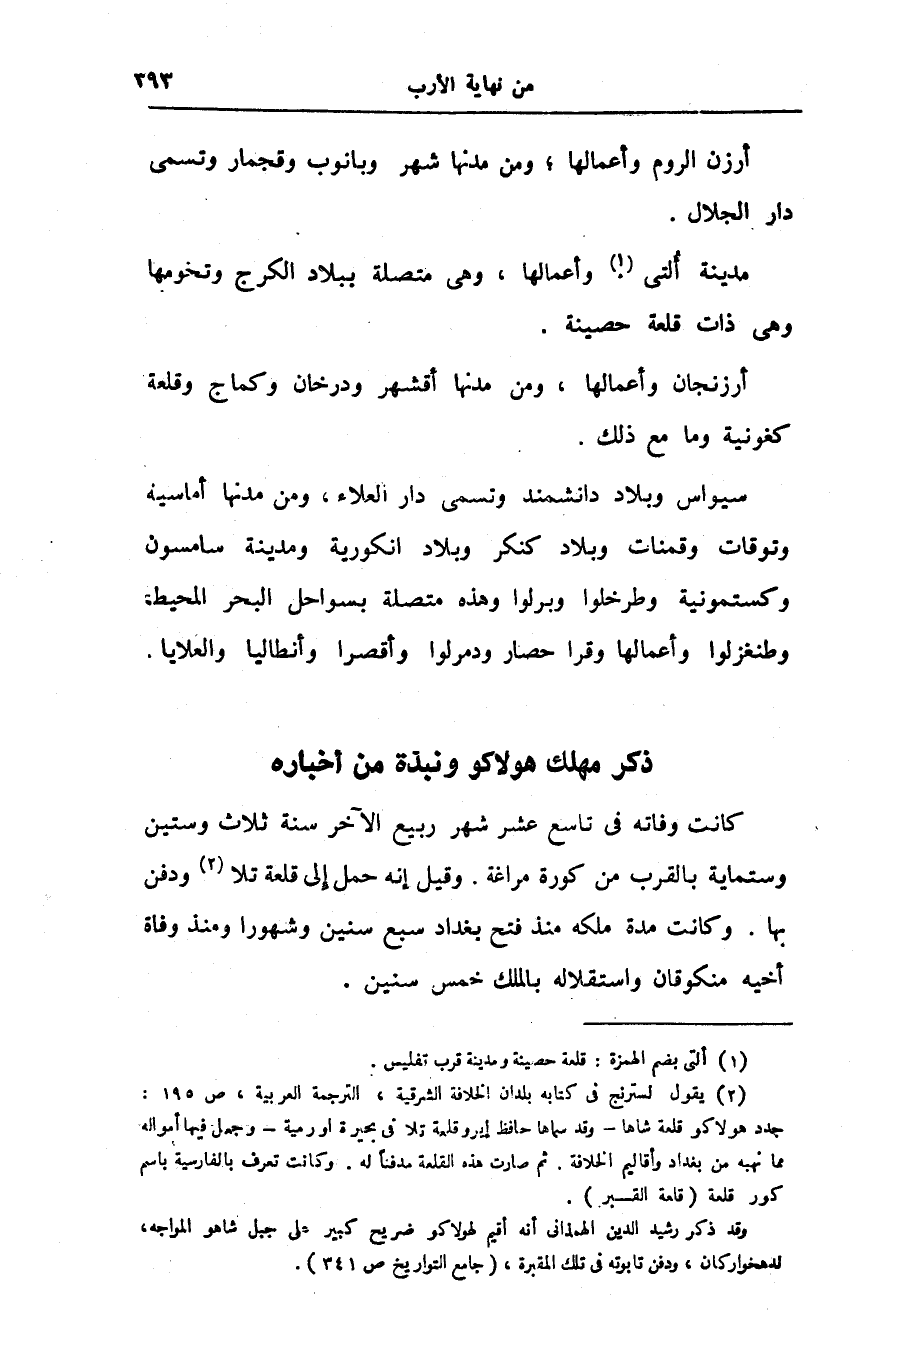 من نهاية الأرب ٣٩٣
أرزن الروم وأعمالها ؛ ومن مدنها شهر وبانوب وقجمار وتسمى
دار الجلال .
مدينة ألتى (١) وأعمالها ، وهى متصلة ببلاد الكرج وتخومها
وهى ذات قلعة حصينة .
أرزنجان وأعمالها ، ومن مدنها أقشهر ودرخان وكماج وقلعة
كغونية وما مع ذلك .
سيواس وبلاد دانشمند وتسمى دار العلاء ، ومن مدنها أماسية
وتوقات وقمنات وبلاد كنكر وبلاد انكورية ومدينة سامسون
وكستمونية وطرخلوا وبرلوا وهذه متصلة بسواحل البحر المحيط؛
وطنغزلوا وأعمالها وقرا حصار ودمرلوا وأقصرا وأنطاليا والعلايا .
ذكر مهلك هولاكو ونبذة من أخباره
كانت وفاته فى تاسع عشر شهر ربيع الآخر سنة ثلاث وستين
وستماية بالقرب من كورة مراغة . وقيل إنه حمل إلى قلعة تلا (٢) ودفن
بها . وكانت مدة ملكه منذ فتح بغداد سبع سنين وشهورا ومنذ وفاة
أخيه منكوقان واستقلاله بالملك خمس سنين .
(١) ألتى بضم الهمزة : قلعة حصينة ومدينة قرب تفليس .
(٢) يقول لسترنج فى كتابه بلدان الخلافة الشرقية ، الترجمة العربية ، ص ١٩٥ :
جدد هولاكو قلعة شاها – وقد سماها حافظ إبرو قلعة تلا فى بحيرة اورمية – وجعل فيها أمواله
مما نهبه من بغداد وأقاليم الخلافة . ثم صارت هذه القلعة مدفناً له . وكانت تعرف بالفارسية باسم
كور قلعة ( قلعة القـــبر ) .
وقد ذكر رشيد الدين الهمذانى أنه أقيم لهولاكو ضريح كبير على جبل شاهو المواجه،
لدهخواركان ، ودفن تابوته فى تلك المقبرة ، ( جامع التواريخ ص ٣٤١ ) .